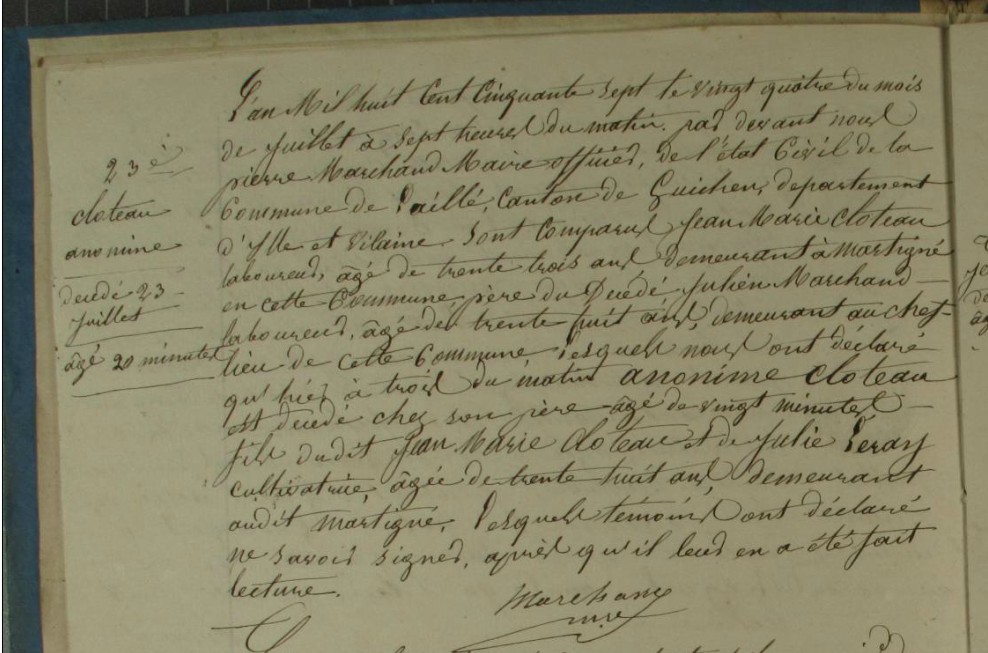 23è
cloteau
anonime
decedé 23
juillet
âgé 20 minutes
L'an Mil huit Cent Cinquante sept le vingt quatre du mois
de juillet à sept heures du matin. par devant nous
pierre Marchand Maire officier, de l'état Civil de la
Commune de Laillé, Canton de Guichen, departement
d'Ille et Vilaine. Sont Comparus Jean Marie Cloteau
laboureur, âgé de trente trois ans demeurant à martigné
en cette Commune, père du Decédé Julien Marchand
laboureur, âgé de trente huit ans, demeurant au chef-
lieu de cette Commune, Lesquels nous ont déclare
qu'hier à trois du matin anonime cloteau
est decedé chez son père âgé de vingt minutes
fils dudit Jean Marie Cloteau et de Julie
cultivatrice, âgée de trente huit ans, demeurant
audit martigné, Lesquels témoins ont déclaré
ne savoir signer, après qu'il leur en a été fait
lecture.
Marchand